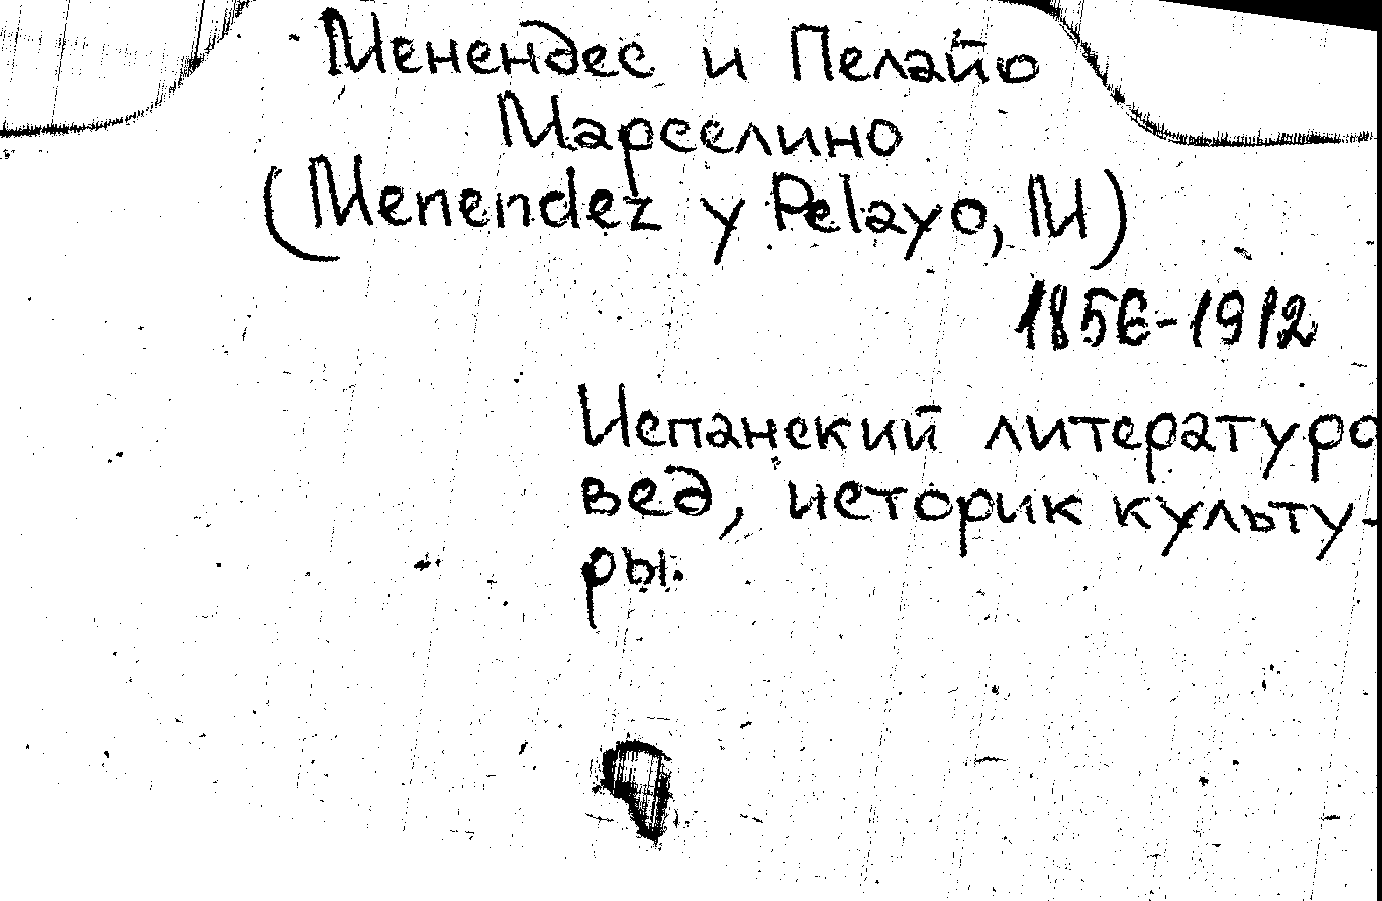 Менендес и Пелайо
Марселино
(Menendez y Pelayo, M)
1856-1912
Испанский литературо
вед, историк культу-
ры.